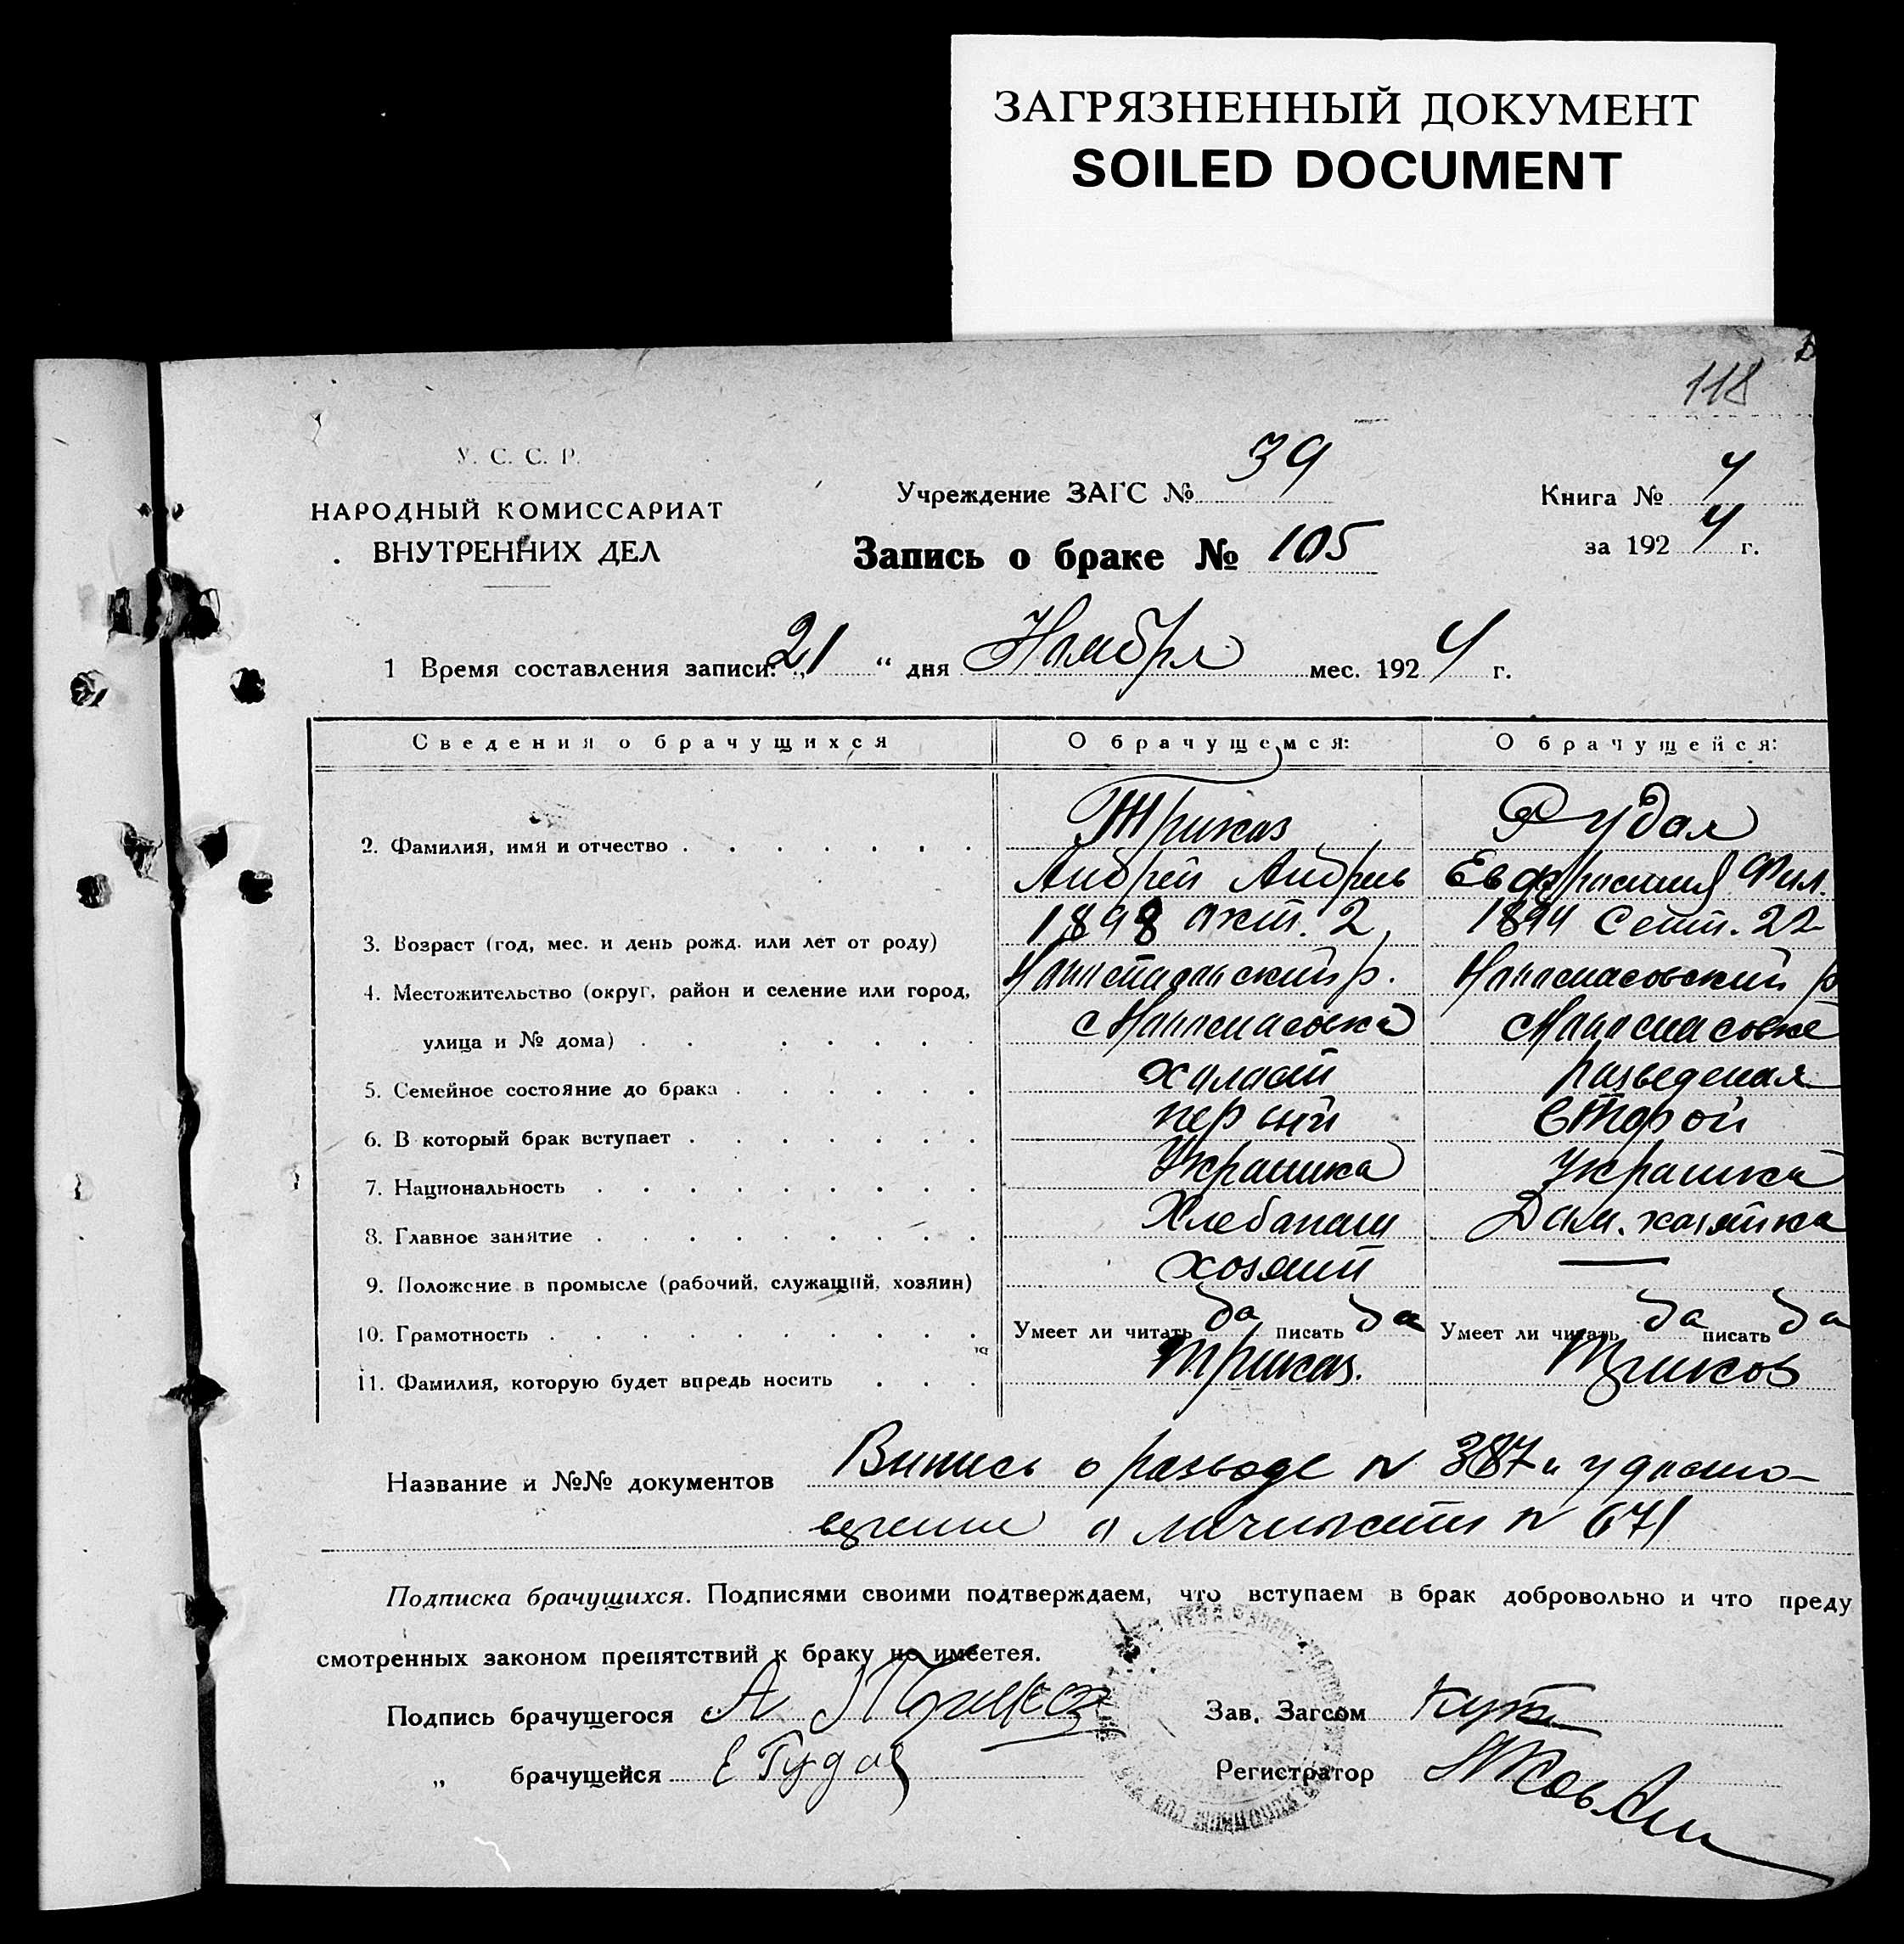 ЗАГРЯЗНЕННЫЙ ДОКУМЕНТ
SOILED DOCUMENT
118
У. С. С. Р.
НАРОДНЫЙ КОМИССАРИАТ
ВНУТРЕННИХ ДЕЛ
Учреждение ЗАГС № 39
Запись о браке № 105
Книга № 4
за 1924 г.
1 Время составления записи: „21“ дня Ноября мес. 1924 г.
Сведения о брачущихся О брачущемся: О брачущейся:
2. Фамилия, имя и отчество Рудая
Андрей Андрее Евфрасиния Фил.
3. Возраст (год, мес. и день рожд. или лет от роду) 1898 окт. 2 1894 Сент. 22
4. Местожительство (округ, район и селение или город,
улица и № дома)
5. Семейное состояние до брака холост разведеная
6. В который брак вступает первый второй
7. Национальность
8. Главное занятие Хлебопаш Дом. хозяйка
9. Положение в промысле (рабочий, служащий, хозяин) хозяин —
10. Грамотность Умеет ли читать да писать да Умеет ли читать да писать да
11. Фамилия, которую будет впредь носить
Название и №№ документов Выпись о разводе № 387 и удосто-
верение о личности № 671
Подписка брачущихся. Подписями своими подтверждаем, что вступаем в брак добровольно и что преду
смотренных законом препятствий к браку не имеетея.
Подпись брачущегося А. Зав. Загсом
„ брачущейся Е Рудая Регистратор